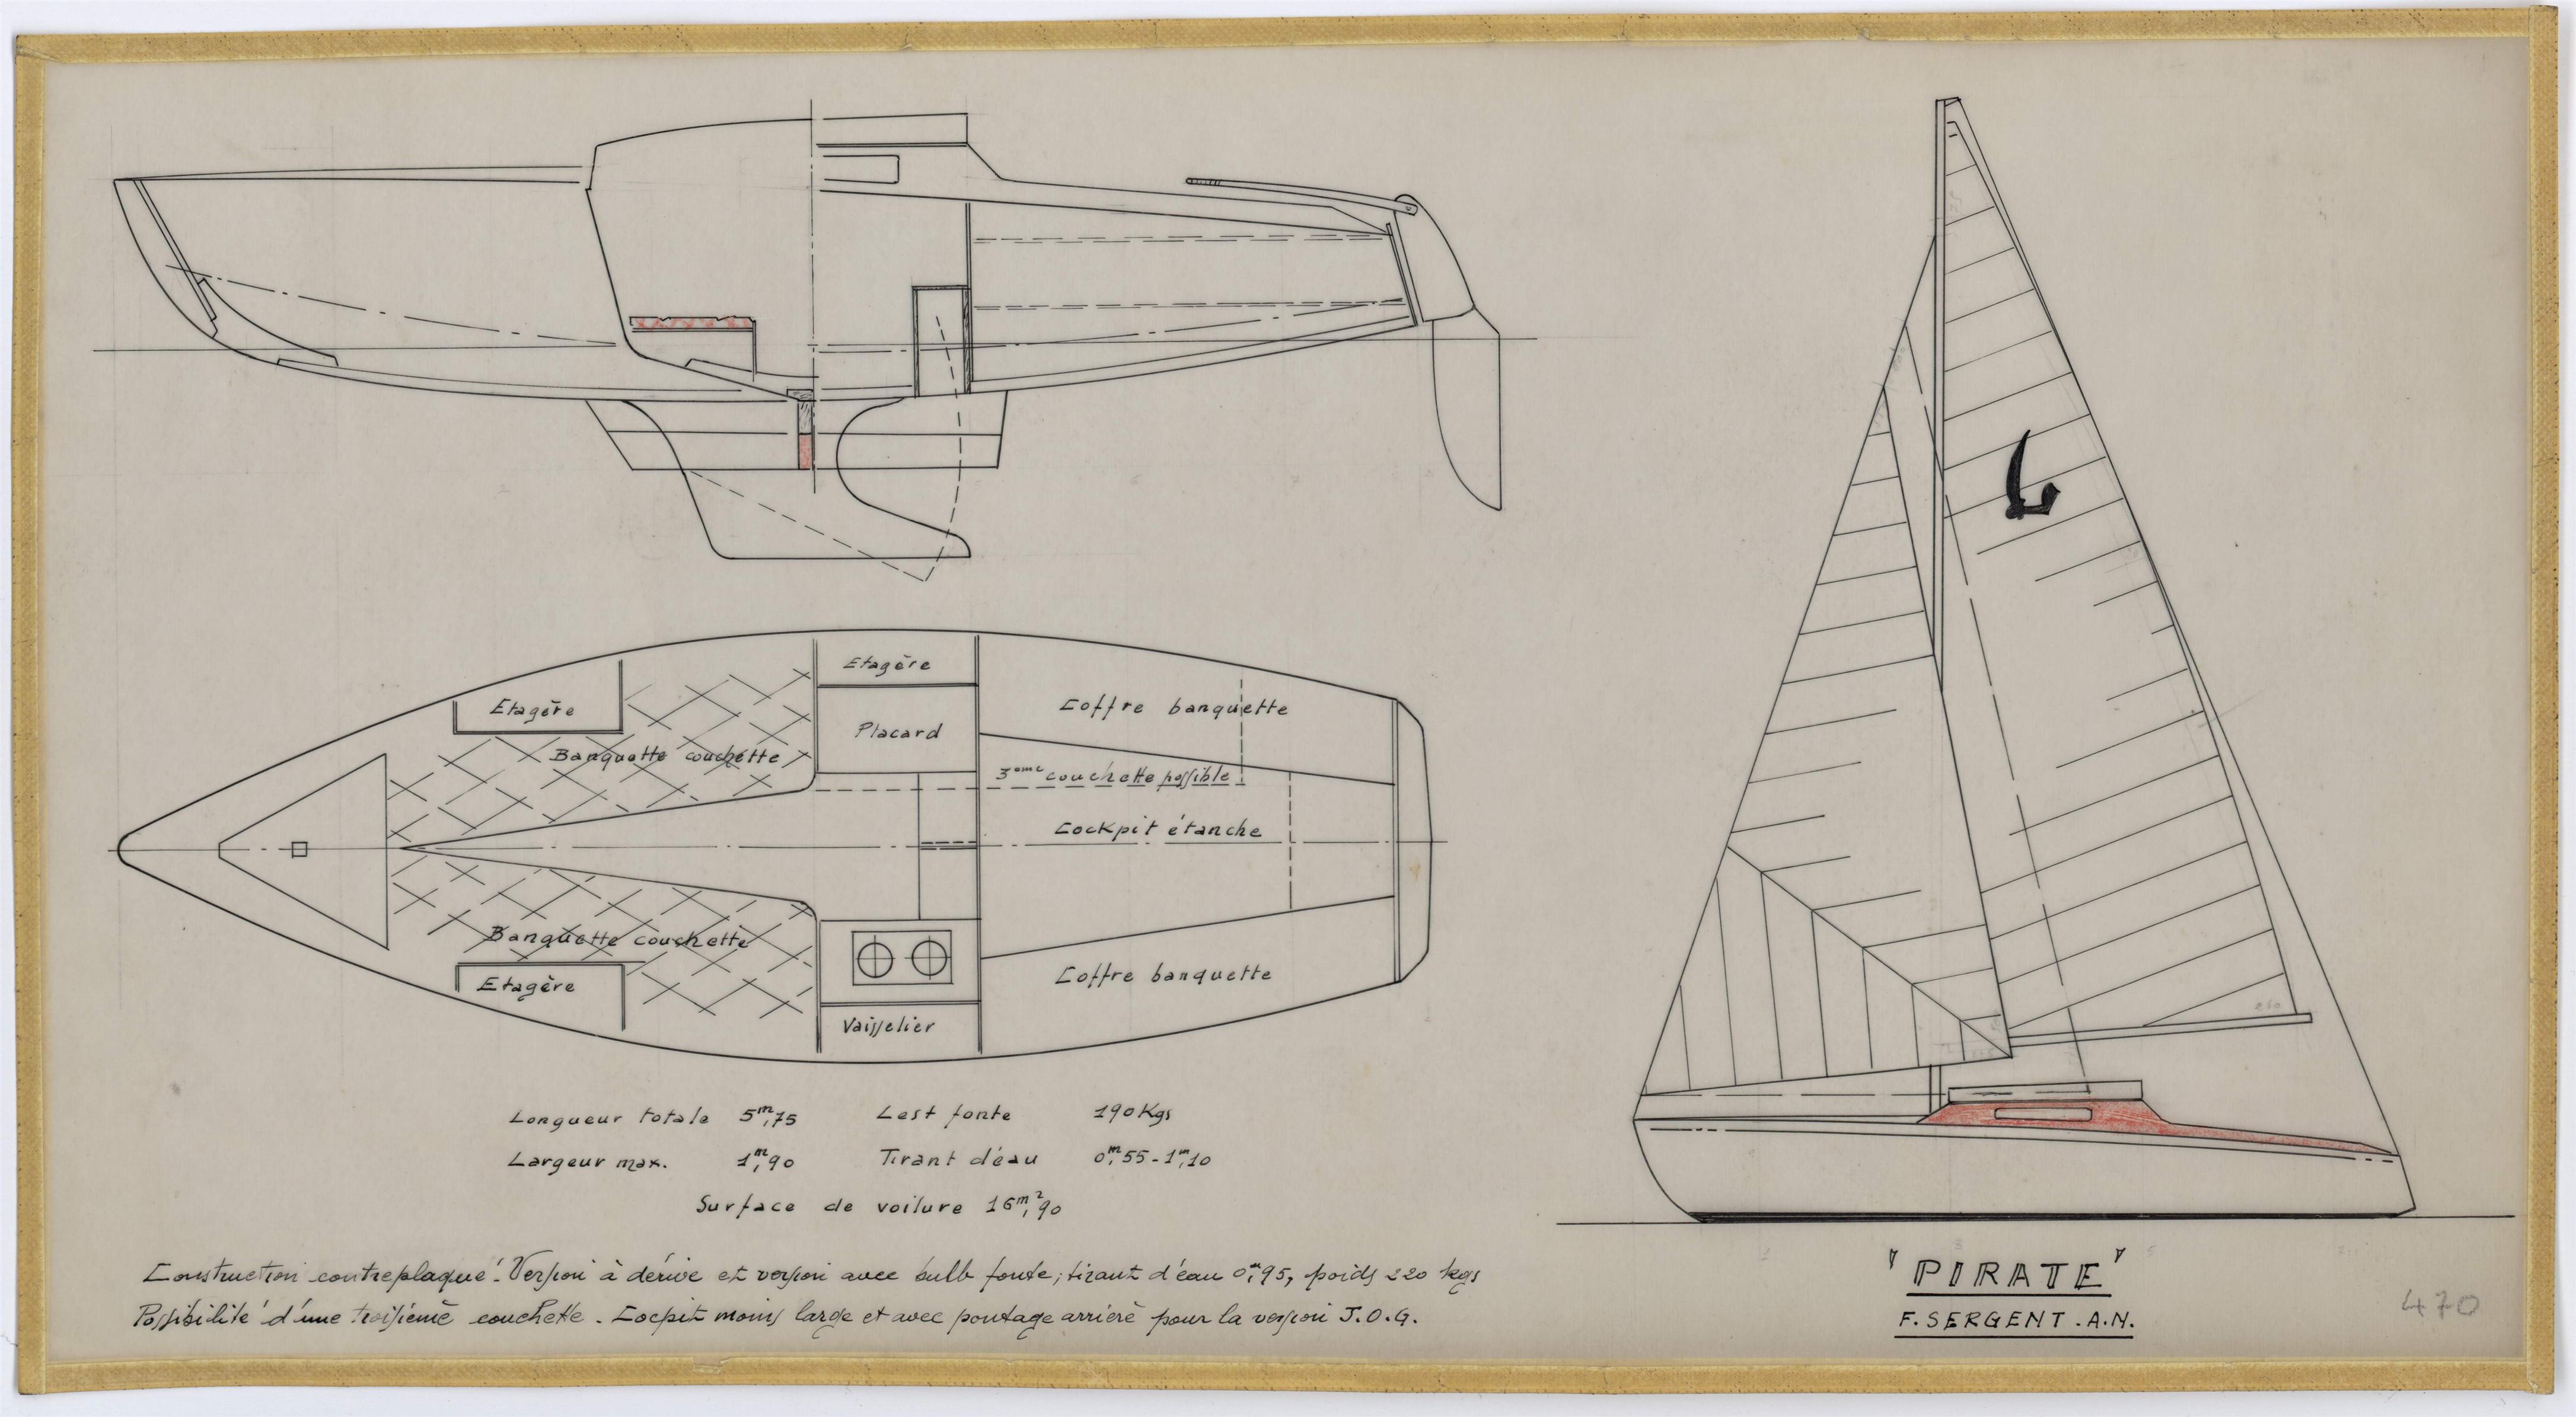 Etagère
Etagère
Placard
Banquette couchette
Coffre banquette
3ème couchette possible
Cockpit étanche
Banquette couchette
Etagère
Coffre banquette
Vaisselier
Longueur totale 5m,75 Lest fonte 190 Kgs
Largeur max. 1m,90 Tirant d'eau 0m,55 - 1m,10
Surface de voilure 16m²,90
Construction contreplaqué. Version à dérive et version avec bulb fonte; tirant d'eau 0m,95, poids 220 kgs
Possibilité d'une troisième couchette. Cocpit moins large et avec pontage arrière pour la version J.O.G.
"PIRATE"
F. SERGENT . A.N.
470